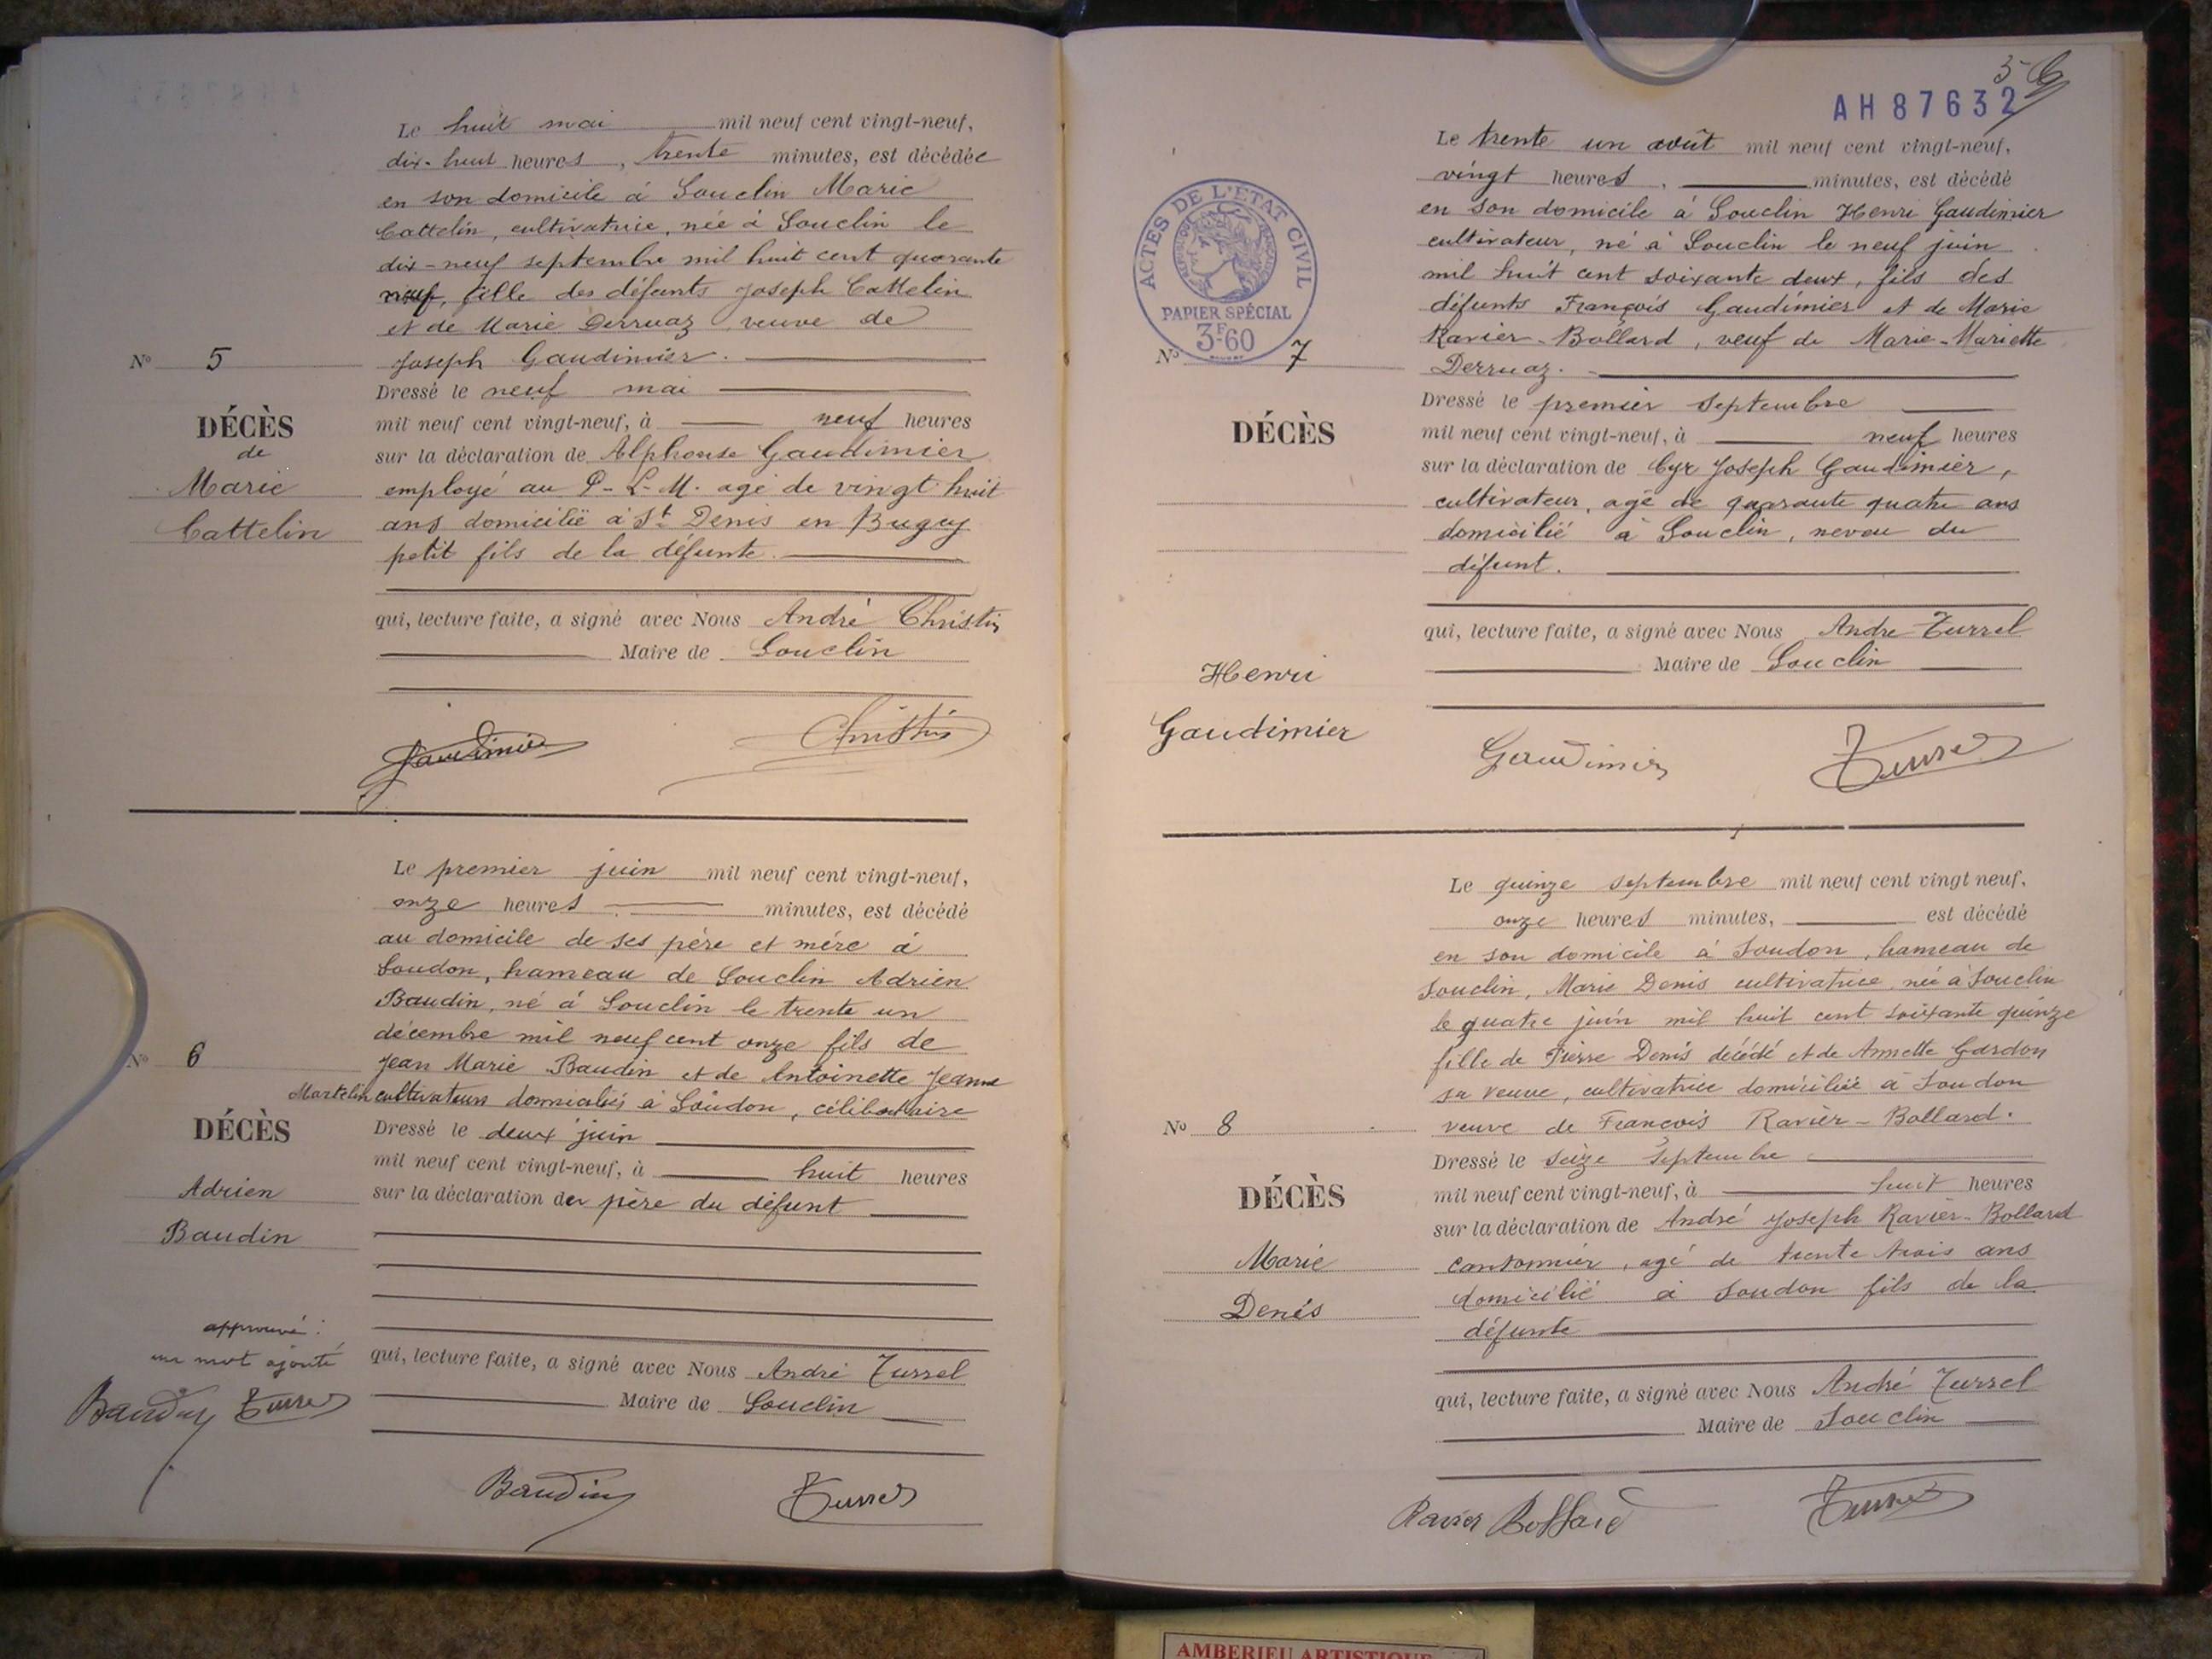 Le huit mai mil neuf cent vingt-neuf,
dix-huit heures, trente minutes, est décédée
en son domicile à Souclin Marie
Cattelin, cultivatrice, née à Souclin le
dix-neuf septembre mil huit cent quarante
neuf, fille des défunts Joseph Cattelin
et de Marie Derruaz veuve de
Joseph Gaudimier.
Dressé le neuf mai
mil neuf cent vingt-neuf, à neuf heures
sur la déclaration de Alphonse Gaudimier
employé au P-L-M. agé de vingt huit
ans domicilié à St Denis en Bugey
petit fils de la défunte.
qui, lecture faite, a signé avec Nous André Christin
Maire de Souclin
No 5
DÉCÈS
de
Marie
Cattelin
Gaudimier Christin
Le premier juin mil neuf cent vingt-neuf,
onze heures minutes, est décédé
au domicile de ses père et mère à
Soudon, hameau de Souclin Adrien
Baudin, né à Souclin le trente un
décembre mil neuf cent onze fils de
Jean Marie Baudin et de Antoinette Jeanne
Martelin cultivateurs domiciliés à Soudon, célibataire
Dressé le deux juin
mil neuf cent vingt-neuf, à huit heures
sur la déclaration du père du défunt
qui, lecture faite, a signé avec Nous André Tussel
Maire de Souclin
No 6
DÉCÈS
Adrien
Baudin
approuvé :
un mot ajouté
Baudin Tussel
Baudin Tussel
5
AH 87632
ACTES DE L'ETAT CIVIL
PAPIER SPÉCIAL
3F60
Le trente un août mil neuf cent vingt-neuf,
vingt heures, minutes, est décédé
en son domicile à Souclin Henri Gaudimier
cultivateur, né à Souclin le neuf juin
mil huit cent soixante deux, fils des
défunts François Gaudimier et de Marie
Ravier-Bollard, veuf de Marie-Mariette
Derruaz.
Dressé le premier septembre
mil neuf cent vingt-neuf, à neuf heures
sur la déclaration de Cyr Joseph Gaudimier,
cultivateur, agé de quarante quatre ans
domicilié à Souclin, neveu du
défunt.
qui, lecture faite, a signé avec Nous Andre Tussel
Maire de Souclin
No 7
DÉCÈS
Henri
Gaudimier
Gaudimier Tussel
Le quinze septembre mil neuf cent vingt neuf,
onze heures minutes, est décédé
en son domicile à Soudon, hameau de
Souclin, Marie Denis cultivatrice née à Souclin
le quatre juin mil huit cent soixante quinze
fille de Pierre Denis décédé et de Annette Gardon
sa veuve, cultivatrice domiciliée à Soudon
veuve de François Ravier-Bollard.
Dressé le seize septembre
mil neuf cent vingt-neuf, à huit heures
sur la déclaration de André Joseph Ravier-Bollard
cantonnier, agé de trente trois ans
domicilié à Soudon fils de la
défunte
qui, lecture faite, a signé avec Nous André Tussel
Maire de Souclin
No 8
DÉCÈS
Marie
Denis
Ravier Bollard Tussel
AMBERIEU ARTISTIQUE